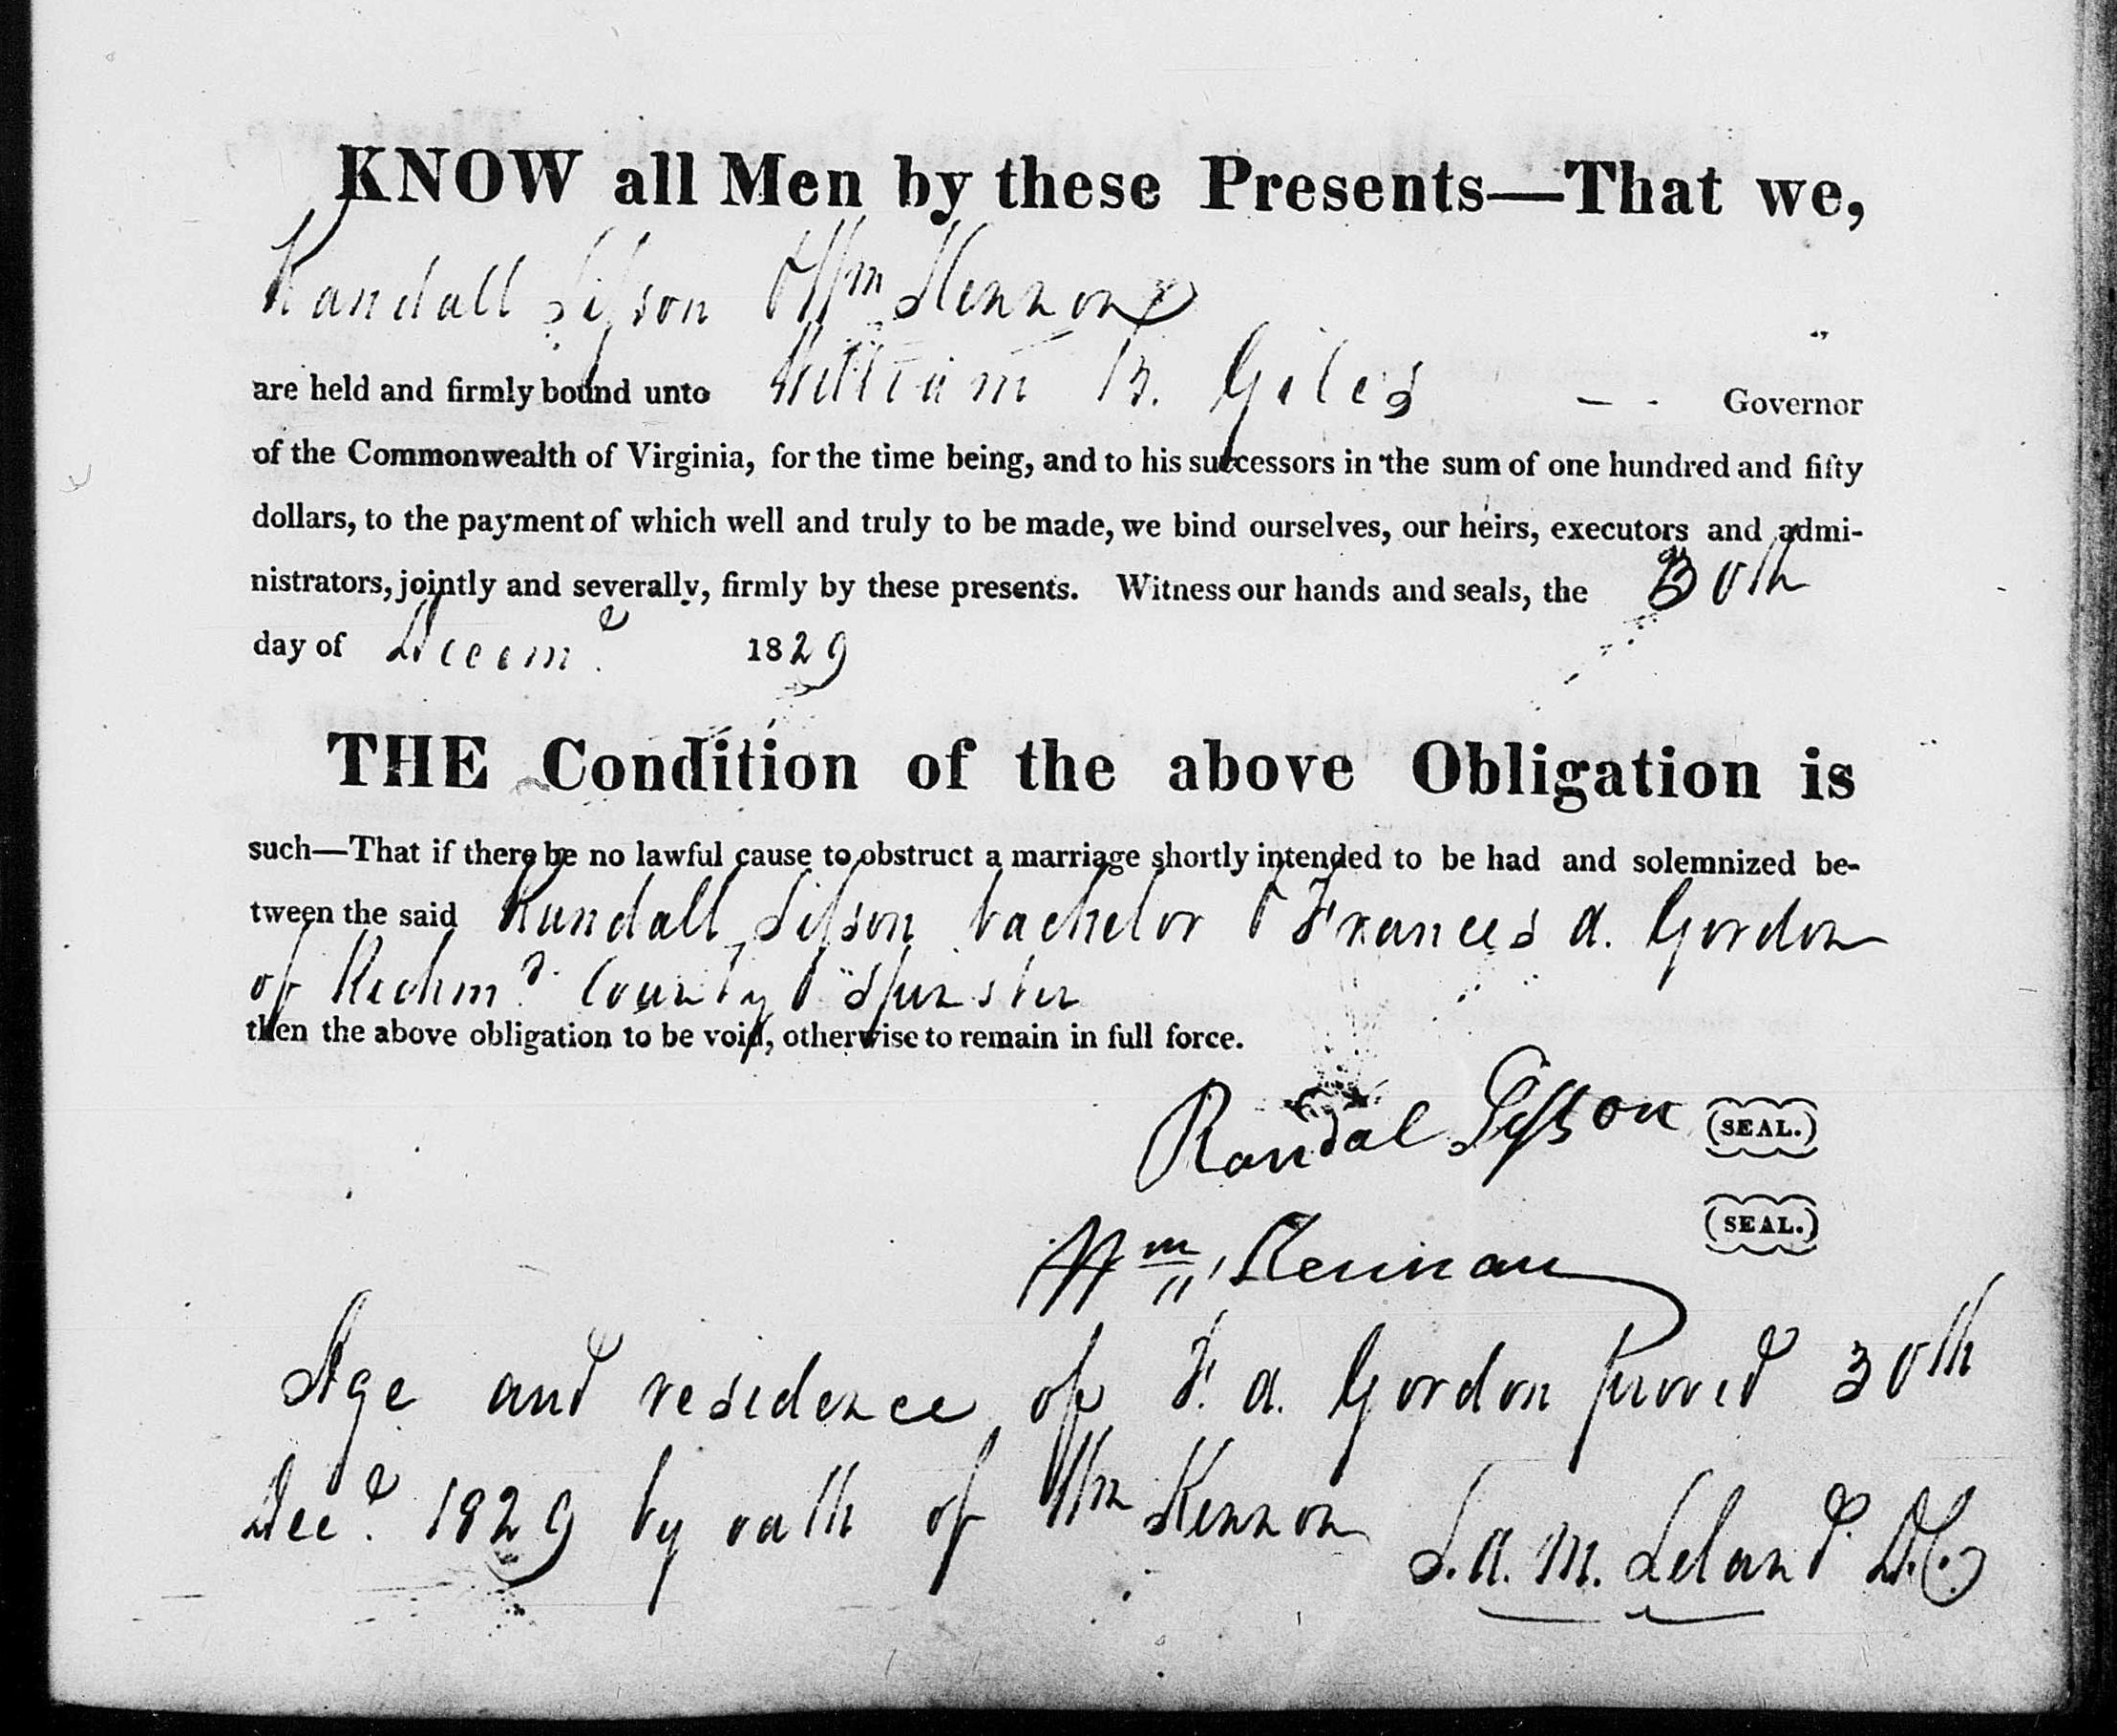 KNOW all Men by these Presents—That we,
Randall Sisson & Wm Kennon
are held and firmly bound unto William B. Giles — - Governor
of the Commonwealth of Virginia, for the time being, and to his successors in the sum of one hundred and fifty
dollars, to the payment of which well and truly to be made, we bind ourselves, our heirs, executors and admi-
nistrators, jointly and severally, firmly by these presents. Witness our hands and seals, the 30th
day of Decemr. 1829
THE Condition of the above Obligation is
such—That if there be no lawful cause to obstruct a marriage shortly intended to be had and solemnized be-
tween the said Randall Sisson bachelor & Frances A. Gordon
of Richmd. County & Spinster
then the above obligation to be void, otherwise to remain in full force.
Randal Sisson (SEAL.)
(SEAL.)
Wm Kennan
Age and residence of F. A. Gordon proved 30th
Decr. 1829 by oath of Wm Kennon L. A. M. Leland D.C.